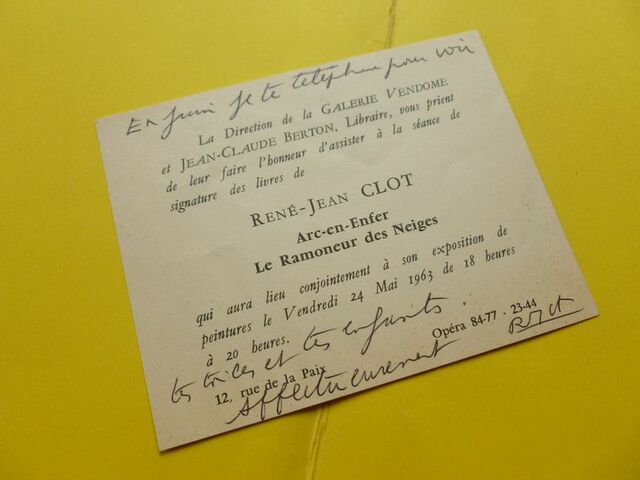 En juin je te téléphone pour voir
La Direction de la GALERIE VENDOME
et JEAN-CLAUDE BERTON, Libraire, vous prient
de leur faire l'honneur d'assister à la séance de
signature des livres de
RENÉ-JEAN CLOT
Arc-en-Enfer
Le Ramoneur des Neiges
qui aura lieu conjointement à son exposition de
peintures le Vendredi 24 Mai 1963 de 18 heures
à 20 heures.
tes et tes enfants.
12, rue de la Paix
Opéra 84-77 - 23-44
Affectueusement
RJ Clot